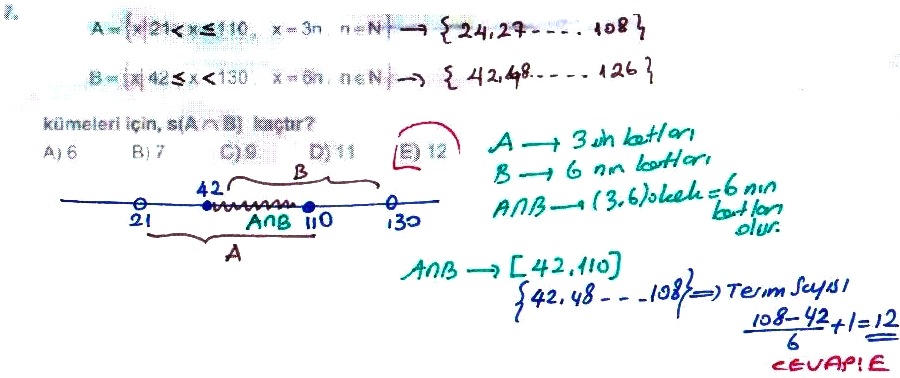 1.
A = {x| 21 < x ≤ 110, x = 3n, n ∈ N} → {24, 27 ..... 108}
B = {x| 42 ≤ x < 130, x = 6n, n ∈ N} → {42, 48 ..... 126}
kümeleri için, s(A ∩ B) kaçtır?
A) 6 B) 7 C) 9 D) 11 E) 12
A → 3 ün katları
B → 6 nın katları
A∩B → (3,6) okek = 6 nın
katları
olur.
B
42
21 A∩B 110 130
A
A∩B → [42, 110]
{42, 48 --- 108} ⇒ Terim Sayısı
108 - 42 / 6 + 1 = 12
CEVAP: E